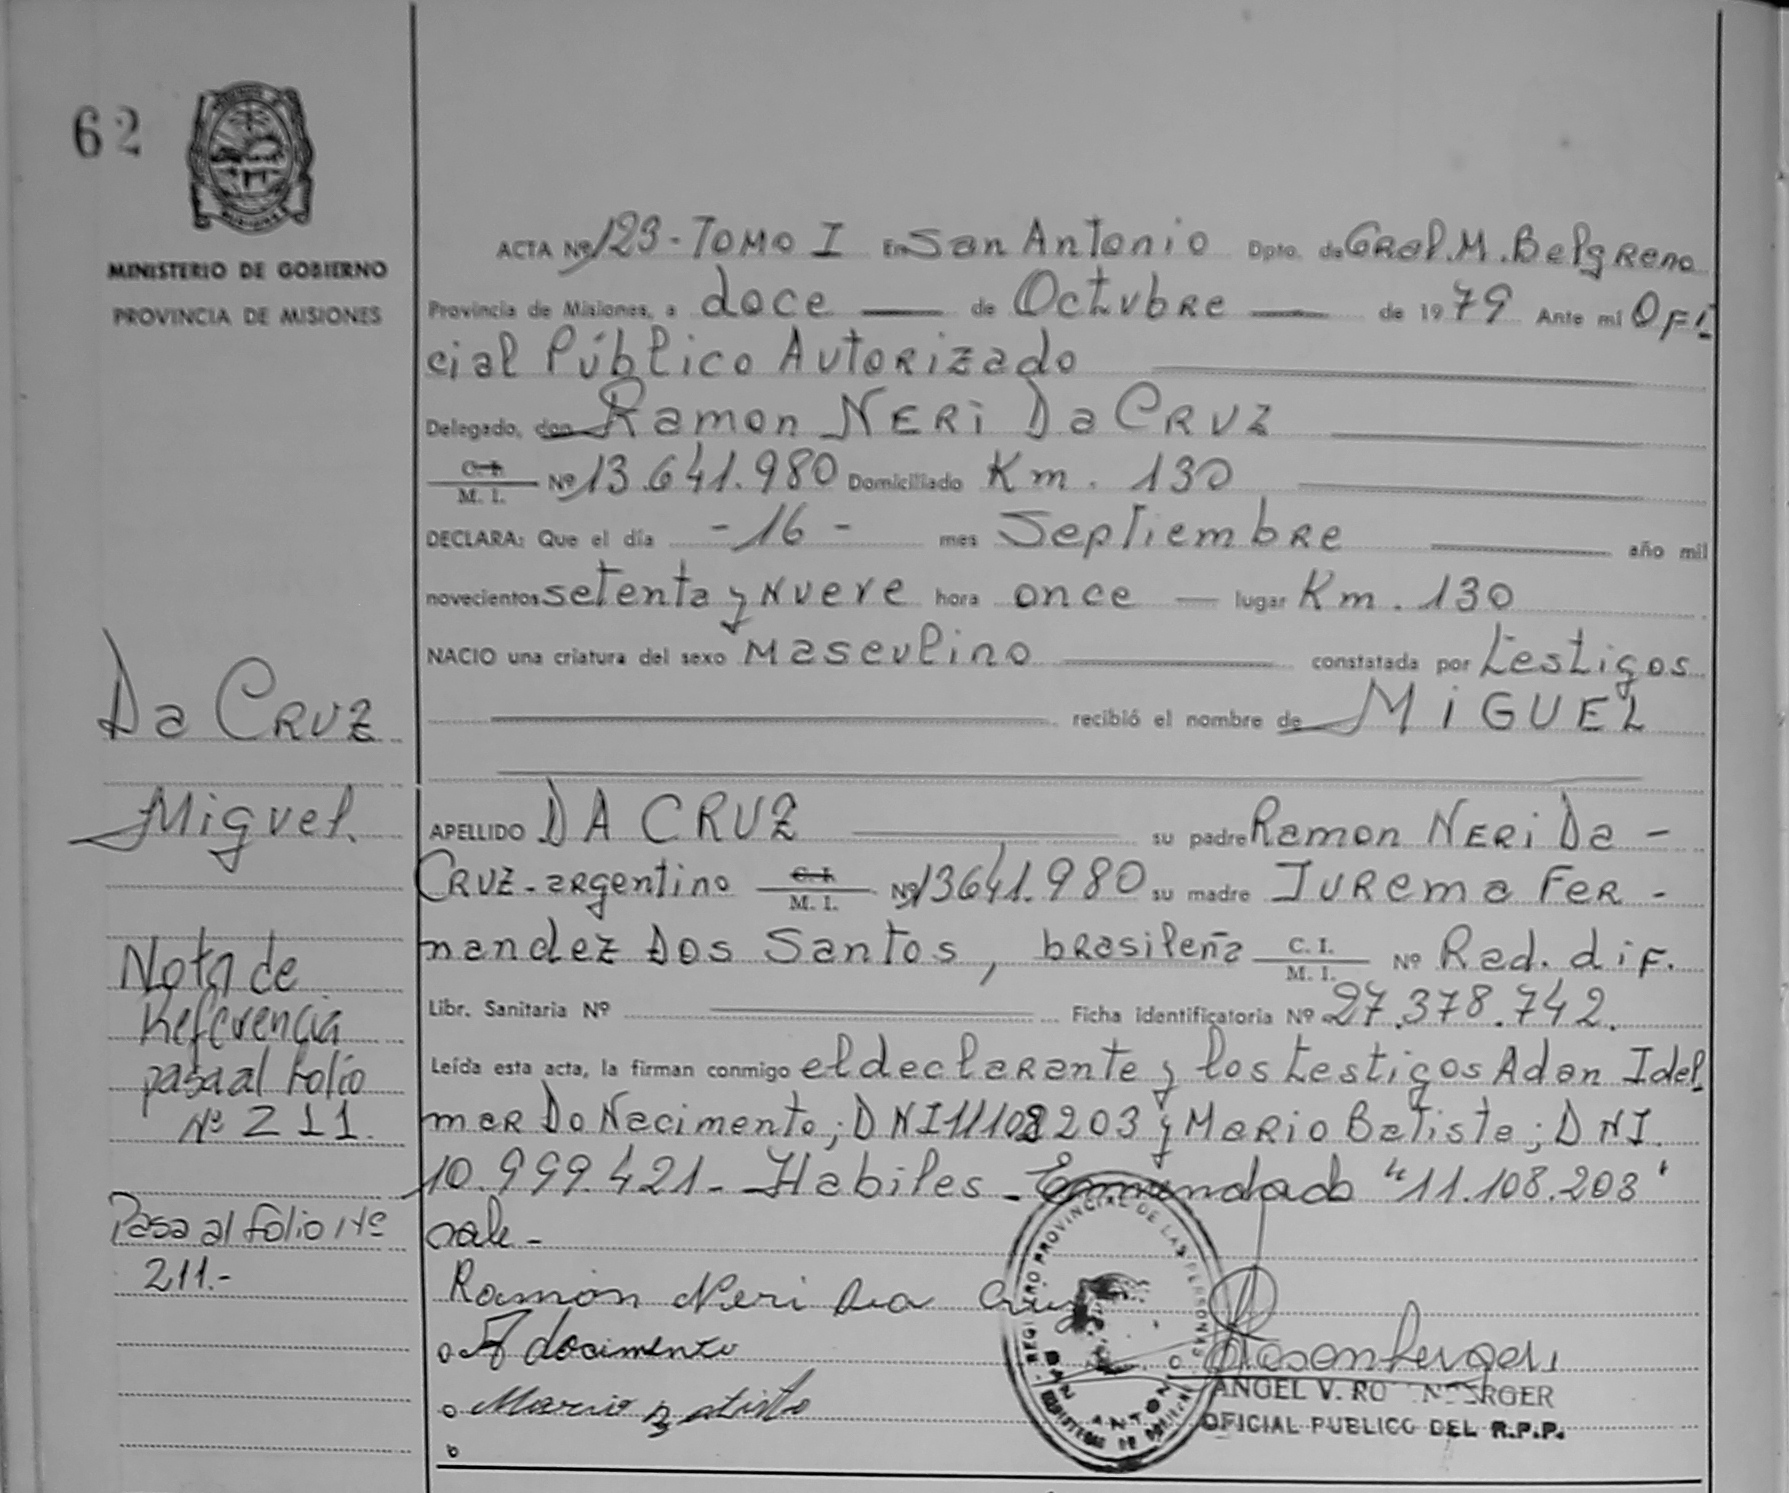 62
MINISTERIO DE GOBIERNO
PROVINCIA DE MISIONES
ACTA Nº 123 - TOMO I En San Antonio Dpto. de GRal. M. BelgRano
Provincia de Misiones, a doce — de OctubRe — de 1979 Ante mi OFI
cial Público AutoRizado
Delegado, don Ramon NERi Da CRUZ
C. I. / M. I. Nº 13.641.980 Domiciliado Km. 130
DECLARA: Que el día - 16 - mes SeptiembRe año mil
novecientos setenta y Nueve hora once — lugar Km. 130
NACIO una criatura del sexo Masculino constatada por testigos
recibió el nombre de MiGUEL
APELLIDO DA CRUZ su padre Ramon NERi Da -
CRUZ - aRgentino C. I. / M. I. Nº 13641.980 su madre IuRema FeR -
nandez Dos Santos, bRasileña C. I. / M. I. Nº Rad. dif.
Libr. Sanitaria Nº Ficha identificatoria Nº 27.378.742.
Leída esta acta, la firman conmigo el declaRante y los testigos Adan Idel
maR Do Nacimento; DNI 11108203 y MaRio Batista; DNI.
10.999.421 - Habiles - Enmendado "11.108.203"
vale -
Da CRUZ
Miguel.
Nota de
Referencia
pasa al Folio
Nº 211.
Pasa al folio Nº
211.-
Ramón Neri Da Cruz
Mario Batista
REGISTRO PROVINCIAL DE LAS PERSONAS
SAN ANTONIO
ANGEL V. RO NBERGER
OFICIAL PUBLICO DEL R.P.P.